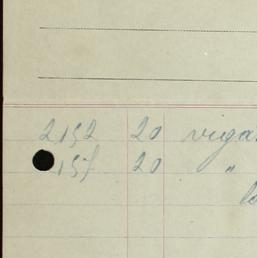 2152 20 viga
157 20 "